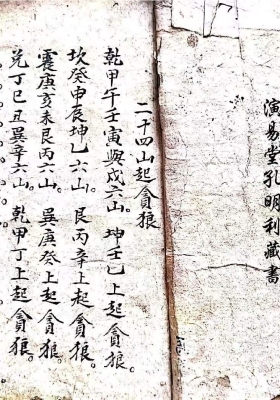 演易堂孔明利藏書
二十四山起貪狼
乾甲午壬寅與戌六山。坤壬乙上起貪狼。
坎癸申辰坤乙六山。艮丙辛上起貪狼。
震庚亥未艮丙六山。巽庚癸上起貪狼。
兌丁巳丑巽辛六山。乾甲丁上起貪狼。